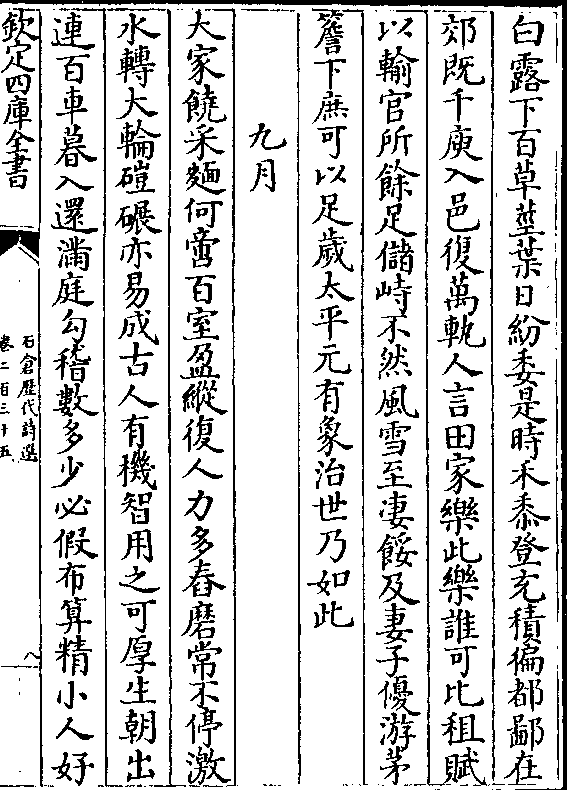 白露下百草莖葉日紛委是時禾黍登充積徧都鄙在
郊既千庾入邑復萬軌人言田家樂此樂誰可比租賦
以輸官所餘足儲峙不然風雪至凄餒及妻子優游茅
簷下庶可以足歲太平元有象治世乃如此
九月
大家饒米麵何啻百室盈縱復人力多舂磨常不停激
水轉大輪磑碾亦易成古人有機智用之可厚生朝出
連百車暮入還滿庭勾稽數多少必假布算精小人好
欽定四庫全書
石倉歷代詩選
卷二百三十五
八